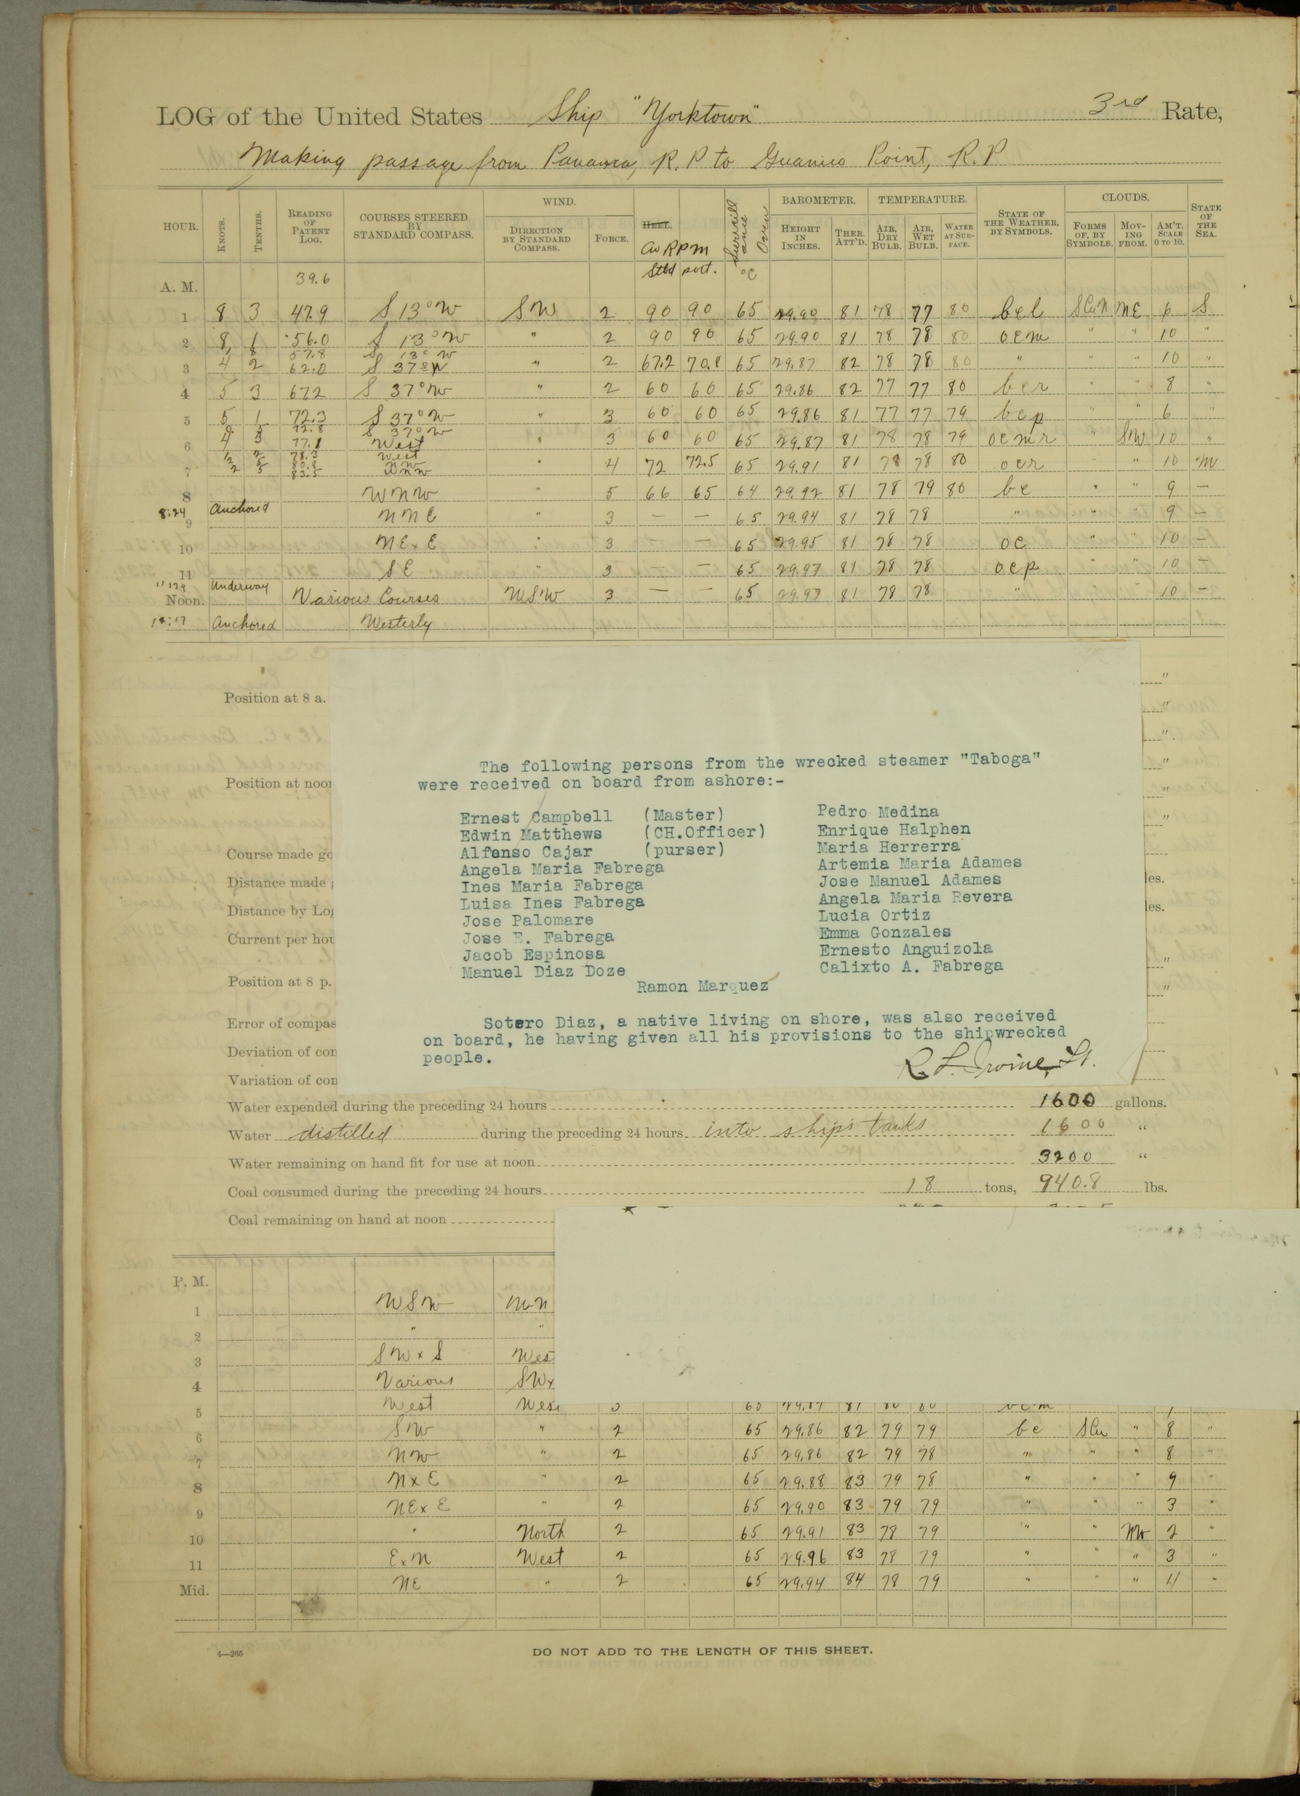 LOG of the United States Ship "Yorktown" 3rd Rate,
Making passage from Panama, R.P to Guanico Point, R.P
HOUR. KNOTS. TENTHS. READING OF PATENT LOG. COURSES STEERED BY STANDARD COMPASS. WIND. DIRECTION BY STANDARD COMPASS. FORCE. HEEL. Av RPM Stbd port. °C BAROMETER. HEIGHT IN INCHES. THER. ATT'D. TEMPERATURE. AIR, DRY BULB. AIR, WET BULB. WATER AT SUR-FACE. STATE OF THE WEATHER, BY SYMBOLS. CLOUDS. FORMS OF, BY SYMBOLS. MOV-ING FROM. AM'T. SCALE 0 TO 10. STATE OF THE SEA.
A. M. 39.6
1 8 3 47.9 S 13° W SW 2 90 90 65 29.90 81 78 77 80 bcl NE 6 S
2 8 1 56.0 S 13° W " 2 90 90 65 29.90 81 78 78 80 ocm " " 10 "
1 8 57.8 S 13° W
3 4 2 62.0 S 37° W " 2 67.2 70.8 65 29.87 82 78 78 80 " " " 10 "
4 5 3 67.2 S 37° W " 2 60 60 65 29.86 82 77 77 80 bcr " " 8 "
5 5 1 72.3 S 37° W " 3 60 60 65 29.86 81 77 77 79 bcp " " 6 "
72.8 S 37° W
6 4 3 77.1 West " 3 60 60 65 29.87 81 78 78 79 ocmr " SW 10 "
78.3 West
7 2 83.5 WNW " 4 72 72.5 65 29.91 81 78 78 80 ocr " " 10 M
8 WNW " 5 66 65 64 29.92 81 78 79 80 bc " " 9 –
8:24 Anchored
9 NNE " 3 — — 65 29.94 81 78 78 " " " 9 –
10 NExE " 3 — — 65 29.95 81 78 78 oc " " 10 –
11 SE " 3 — — 65 29.97 81 78 78 ocp " " 10 –
11:29 Underway
Noon. Various Courses WSW 3 — — 65 29.97 81 78 78 " " " 10 –
12:17 Anchored Westerly
Position at 8 a.
Position at noon
The following persons from the wrecked steamer "Taboga"
were received on board from ashore:-
Ernest Campbell (Master) Pedro Medina
Edwin Matthews (CH.Officer) Enrique Halphen
Alfonso Cajar (purser) Maria Herrerra
Angela Maria Fabrega Artemia Maria Adames
Ines Maria Fabrega Jose Manuel Adames
Luisa Ines Fabrega Angela Maria Revera
Jose Palomare Lucia Ortiz
Jose E. Fabrega Emma Gonzales
Jacob Espinosa Ernesto Anguizola
Manuel Diaz Doze Calixto A. Fabrega
Ramon Marquez
Sotero Diaz, a native living on shore, was also received
on board, he having given all his provisions to the shipwrecked
people.
R. L. Irvine, Lt.
Course made go
Distance made les.
Distance by Log les.
Current per hou
Position at 8 p.
Error of compas
Deviation of com
Variation of com
Water expended during the preceding 24 hours 1600 gallons.
Water distilled during the preceding 24 hours into ship's tanks 1600 "
Water remaining on hand fit for use at noon 3200 "
Coal consumed during the preceding 24 hours 18 tons, 940.8 lbs.
Coal remaining on hand at noon
P. M.
1 WSW
2 " "
3 SWxS Wes
4 Various SWx
5 West Wes 3 65 81
6 SW " 2 65 29.86 82 79 79 bc " 8 "
7 NW " 2 65 29.86 82 79 78 " " " 8 "
8 NxE " 2 65 29.88 83 79 78 " " " 9 "
9 NExE " 2 65 29.90 83 79 79 " " " 3 "
10 " North 2 65 29.91 83 78 79 " " NW 2 "
11 ExN West 2 65 29.96 83 78 79 " " " 3 "
Mid. NE " 2 65 29.94 84 78 79 " " " 4 "
4—265
DO NOT ADD TO THE LENGTH OF THIS SHEET.